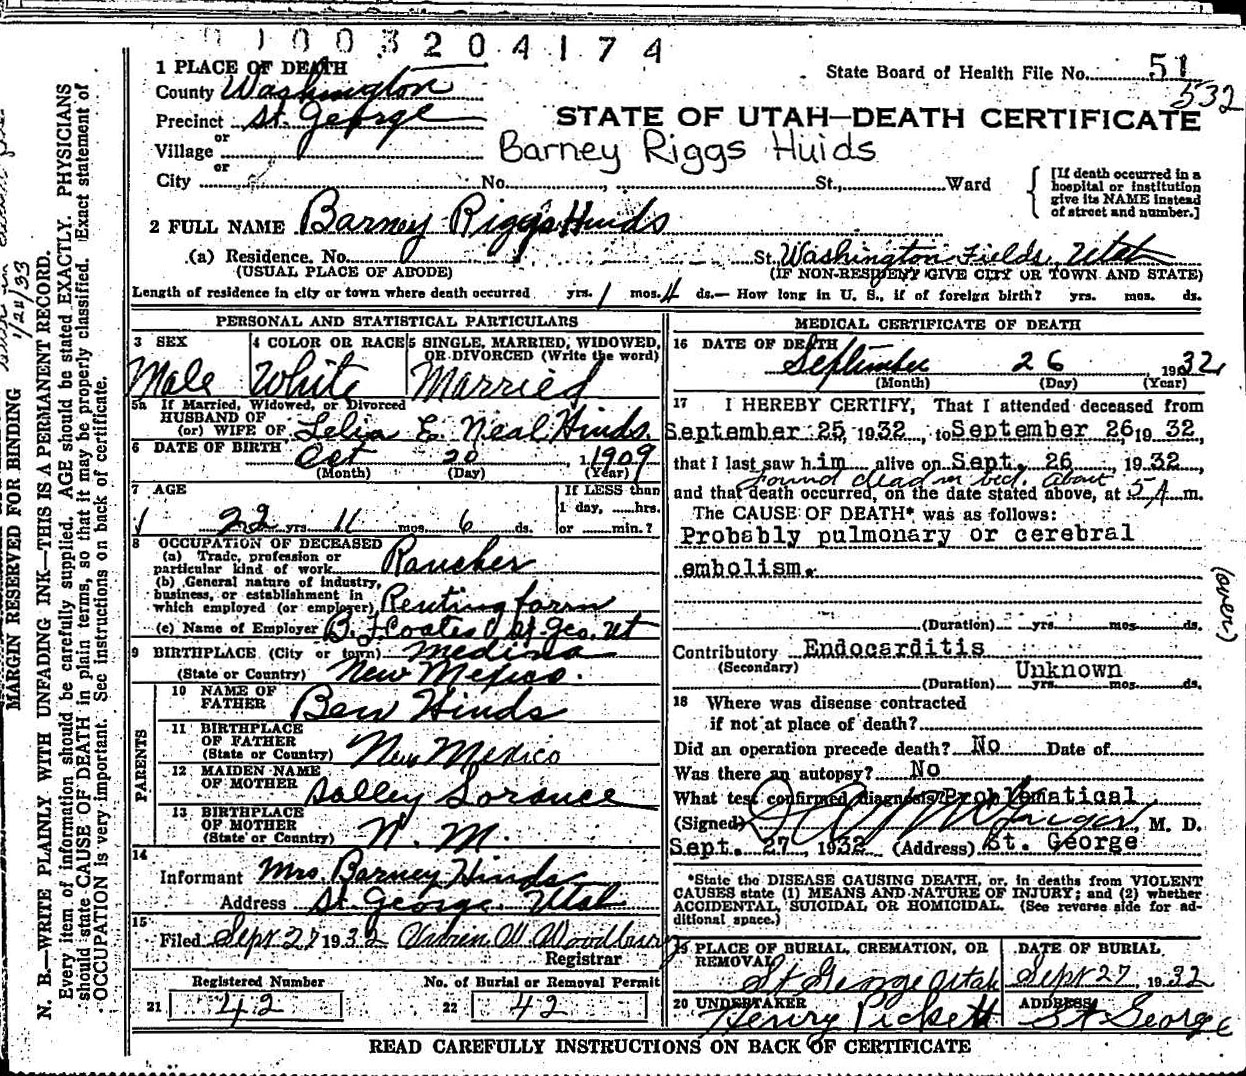 01003204174
1 PLACE OF DEATH
County Washington
Precinct St. George
or
Village
or
City No. St., Ward
State Board of Health File No. 51
532
STATE OF UTAH—DEATH CERTIFICATE
Barney Riggs Huids
[If death occurred in a hospital or institution give its NAME instead of street and number.]
2 FULL NAME Barney Riggs Hinds
(a) Residence. No. St. Washington Fields, Utah
(USUAL PLACE OF ABODE) (IF NON-RESIDENT GIVE CITY OR TOWN AND STATE)
Length of residence in city or town where death occurred yrs. 1 mos. 4 ds.— How long in U. S., if of foreign birth? yrs. mos. ds.
PERSONAL AND STATISTICAL PARTICULARS
3 SEX
Male
4 COLOR OR RACE
White
5 SINGLE, MARRIED, WIDOWED, OR DIVORCED (Write the word)
Married
5a If Married, Widowed, or Divorced
HUSBAND OF
(or) WIFE OF Lelia E. Neal Hinds
6 DATE OF BIRTH Oct 20 1909
(Month) (Day) (Year)
7 AGE
22 yrs. 11 mos. 6 ds.
If LESS than
1 day, hrs.
or min.?
8 OCCUPATION OF DECEASED
(a) Trade, profession or
particular kind of work Rancher
(b) General nature of industry,
business, or establishment in
which employed (or employer) Renting farm
(c) Name of Employer B. F. Coates St. Geo. Ut
9 BIRTHPLACE (City or town) Medina
(State or Country) New Mexico.
PARENTS
10 NAME OF
FATHER Ben Hinds
11 BIRTHPLACE
OF FATHER
(State or Country) New Mexico
12 MAIDEN NAME
OF MOTHER Salley
13 BIRTHPLACE
OF MOTHER
(State or Country) N. M.
14
Informant Mrs. Barney Hinds
Address St. George. Utah
15
Filed Sept 27 1932 W. Woodbury
Registrar
Registered Number
21 42
No. of Burial or Removal Permit
22 42
MEDICAL CERTIFICATE OF DEATH
16 DATE OF DEATH
September 26 1932
(Month) (Day) (Year)
17 I HEREBY CERTIFY, That I attended deceased from
September 25, 1932, to September 26 19 32,
that I last saw him alive on Sept. 26, 1932,
found dead in bed. About
and that death occurred, on the date stated above, at 5 A m.
The CAUSE OF DEATH* was as follows:
Probably pulmonary or cerebral
embolism.
(Duration) yrs. mos. ds.
Contributory Endocarditis
(Secondary) Unknown
(Duration) yrs. mos. ds.
(over)
18 Where was disease contracted
if not at place of death?
Did an operation precede death? No Date of
Was there an autopsy? No
What test confirmed diagnosis? Problematical
(Signed) M. D.
Sept. 27, 1932 (Address) St. George
*State the DISEASE CAUSING DEATH, or, in deaths from VIOLENT
CAUSES state (1) MEANS AND NATURE OF INJURY; and (2) whether
ACCIDENTAL, SUICIDAL OR HOMICIDAL. (See reverse side for ad-
ditional space.)
19 PLACE OF BURIAL, CREMATION, OR
REMOVAL
St George Utah
DATE OF BURIAL
Sept 27, 1932
20 UNDERTAKER
Henry Pickett
ADDRESS
St George
READ CAREFULLY INSTRUCTIONS ON BACK OF CERTIFICATE
1/24/33
MARGIN RESERVED FOR BINDING
N. B.—WRITE PLAINLY WITH UNFADING INK—THIS IS A PERMANENT RECORD.
Every item of information should be carefully supplied. AGE should be stated EXACTLY. PHYSICIANS
should state CAUSE OF DEATH in plain terms, so that it may be properly classified. Exact statement of
OCCUPATION is very important. See instructions on back of certificate.